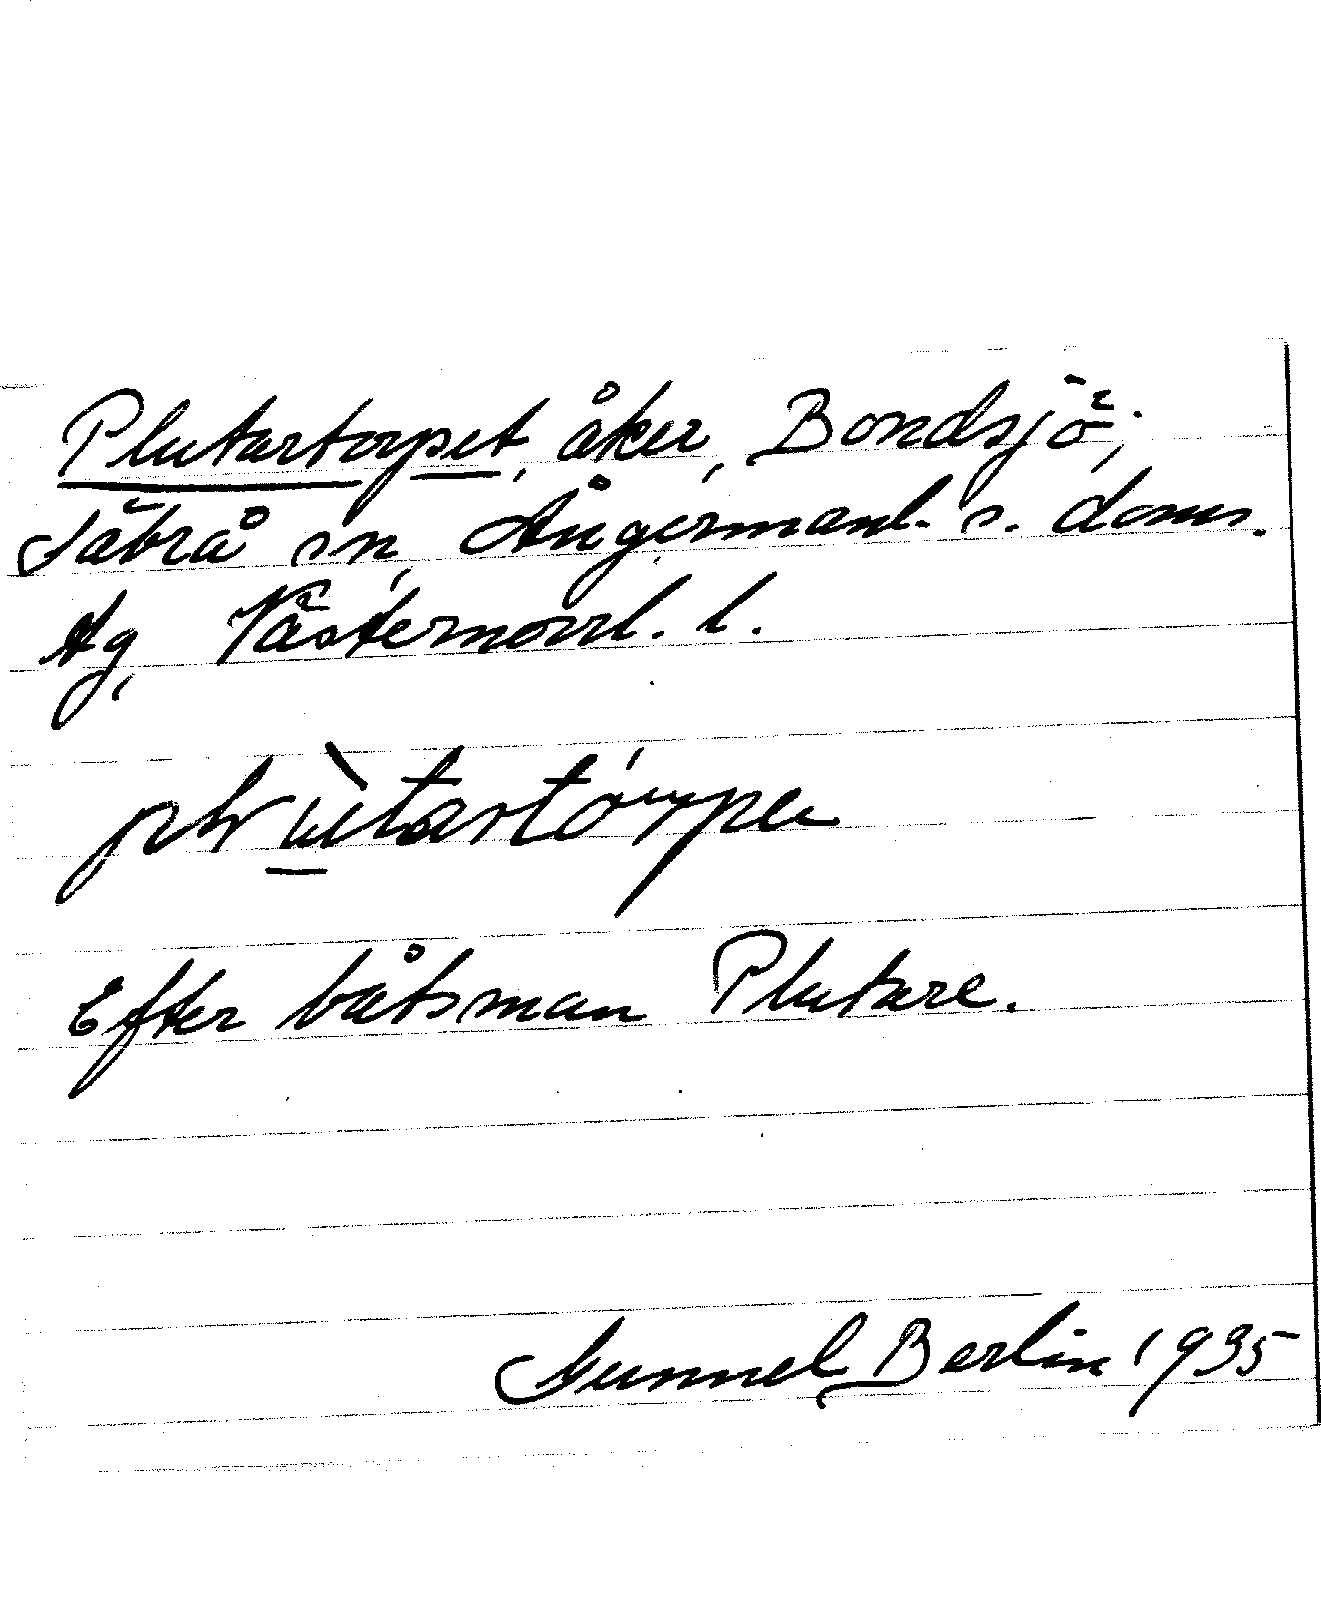 Plutartorpet, åker, Bondsjö²;
Säbrå sn, Ångermanl. s. doms.
Hg, Västernorrl. l.
Efter båtsman Plutare.
Gunnel Berlin 1935